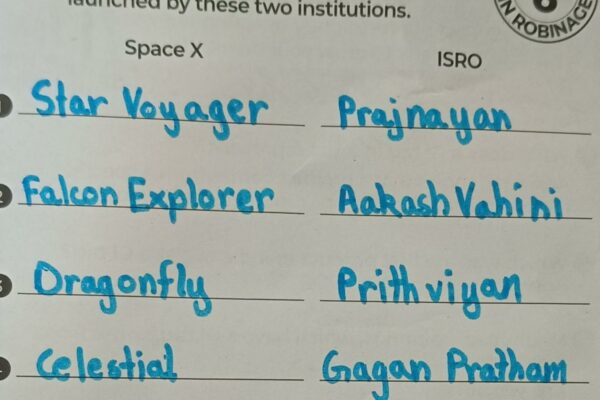 launched by these two institutions.
IN ROBINAGE
Space X ISRO
1 Star Voyager Prajnayan
2 Falcon Explorer Aakash Vahini
3 Dragonfly Prithviyan
Celestial Gagan Pratham